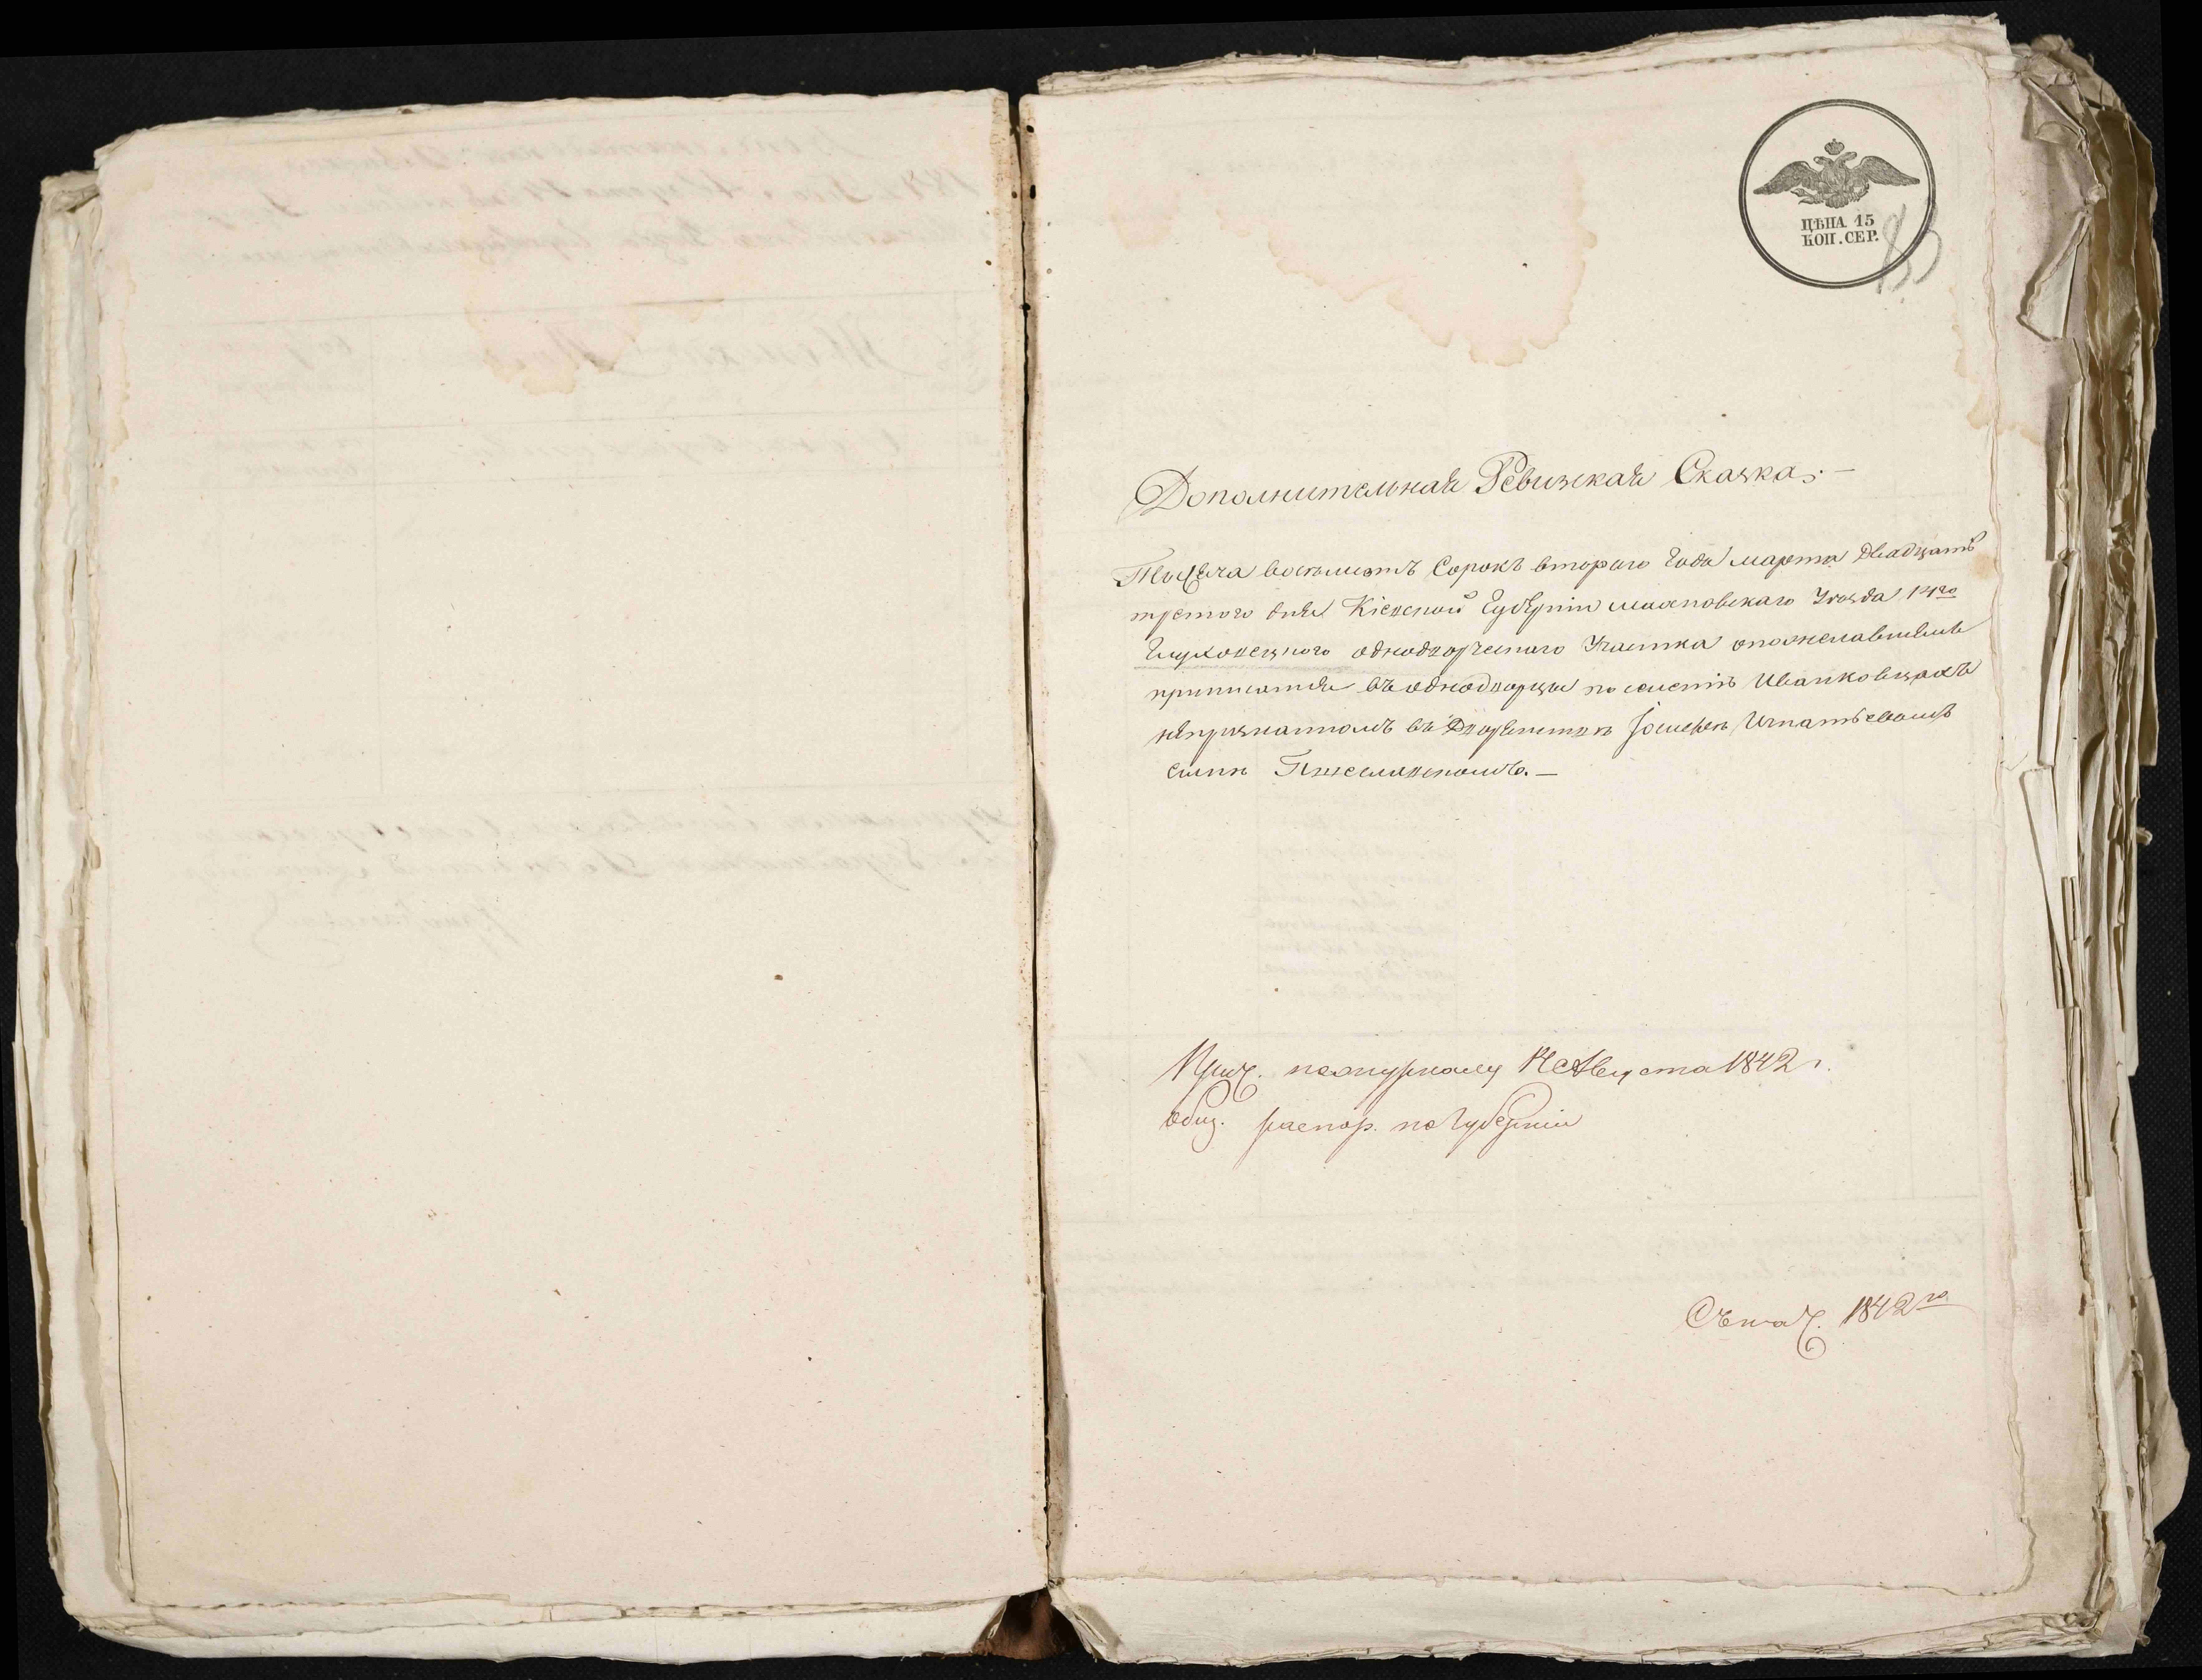 ЦѢНА 15
КОП. СЕР.
83
Дополнительная Ревизская Сказка.—
Тысяча восемьсотъ Сорокъ втораго Года марта двадцать
третого дня Кіевской Губерніи махновскаго Уѣзда 14го
Глуховецкого однодворческого Участка о пожелавшемъ
приписатся въ однодворцы по селенію Иванковцахъ
непризнанномъ въ Дворянствѣ Іосифѣ Игнатьевомъ
сынѣ
Прич. по журналу 12 Августа 1842 г.
общ. распор. по Губерніи
1842го